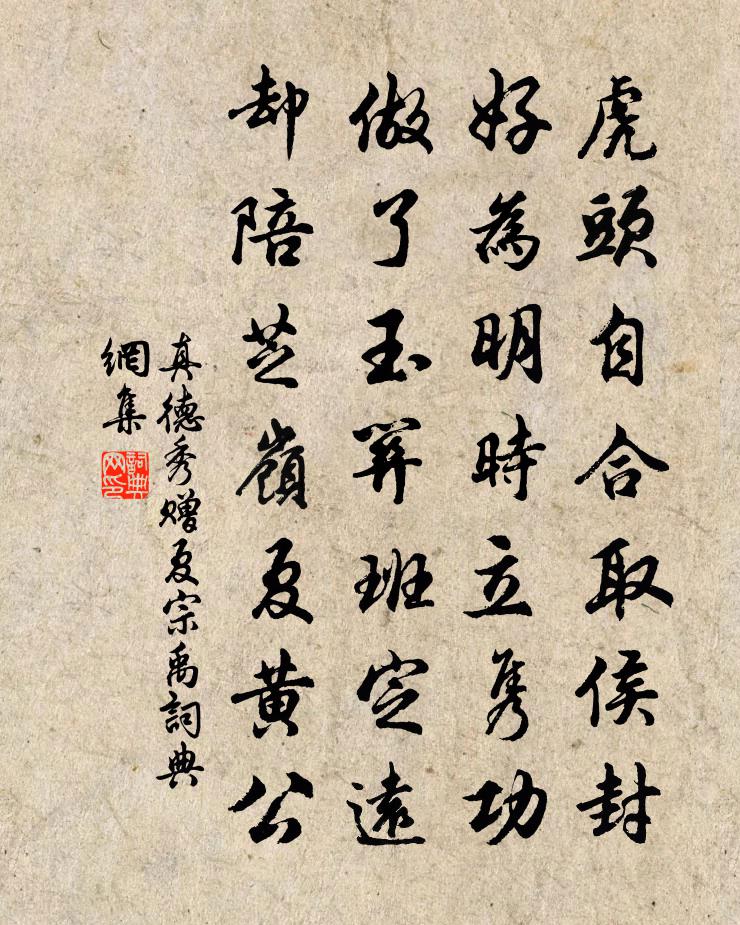 虎頭自合取侯封
好為明時立隽功
做了玉關班定遠
却陪芝嶺夏黄公
真德秀赠夏宗禹詞典
網集
詞典
网印